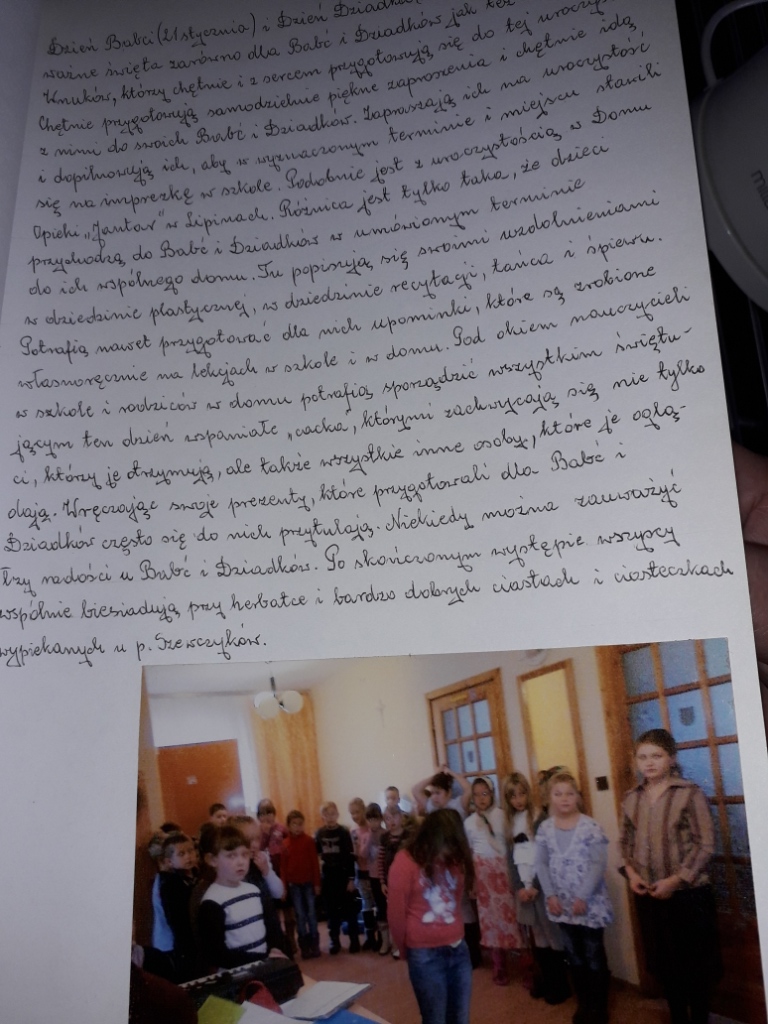 Dzień Babci (21 stycznia) i Dzień
ważne święta zarówno dla Babć i Dziadków jak też
Wnuków, którzy chętnie i z sercem przygotowują się do tej
Chętnie przygotowują samodzielnie piękne zaproszenia i chętnie idą
z nimi do swoich Babć i Dziadków. Zapraszają ich na uroczystość
i dopilnowują ich, aby w wyznaczonym terminie i miejscu stawili
się na imprezkę w szkole. Podobnie jest z uroczystością w Domu
Opieki „Jantar" w Lipinach. Różnica jest tylko taka, że dzieci
przychodzą do Babć i Dziadków w umówionym terminie
do ich wspólnego domu. Tu popisują się swoimi uzdolnieniami
w dziedzinie plastycznej, w dziedzinie recytacji, tańca i śpiewu.
Potrafią nawet przygotować dla nich upominki, które są zrobione
własnoręcznie na lekcjach w szkole i w domu. Pod okiem nauczycieli
w szkole i rodziców w domu potrafią sporządzić wszystkim świętu-
jącym ten dzień wspaniałe „cacka, którymi zachwycają się nie tylko
ci, którzy je otrzymują, ale także wszystkie inne osoby, które je oglą-
dają. Wręczając swoje prezenty, które przygotowali dla Babć i
Dziadków często się do nich przytulają. Niekiedy można zauważyć
łzy radości u Babć i Dziadków. Po skończonym występie wszyscy
wspólnie biesiadują przy herbatce i bardzo dobrych ciastach i ciasteczkach
wypiekanych u p. Szewczyków.